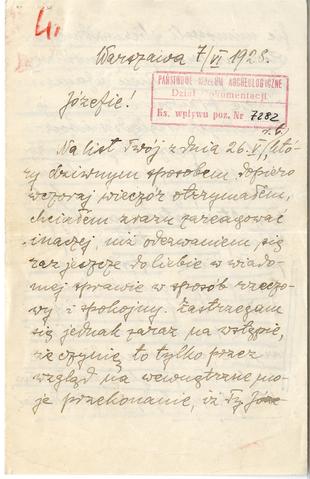 4.
Warszawa 7/VI 1928.
PAŃSTWOWE MUZEUM ARCHEOLOGICZNE
Dział Dokumentacji
Ks. wpływu poz. Nr 7282
Józefie!
Na list Twój z dnia 26.V, któ
ry dziwnym sposobem dopiero
wczoraj wieczór otrzymałem,
chciałem zrazu zareagować
inaczej, niż odezwaniem się
raz jeszcze do Ciebie w wiado-
mej sprawie w sposób rzeczo-
wy i spokojny. Zastrzegam
się jednak zaraz na wstępie,
że czynię to tylko przez
wzgląd na wewnętrzne mo-
je przekonanie, iż Ty